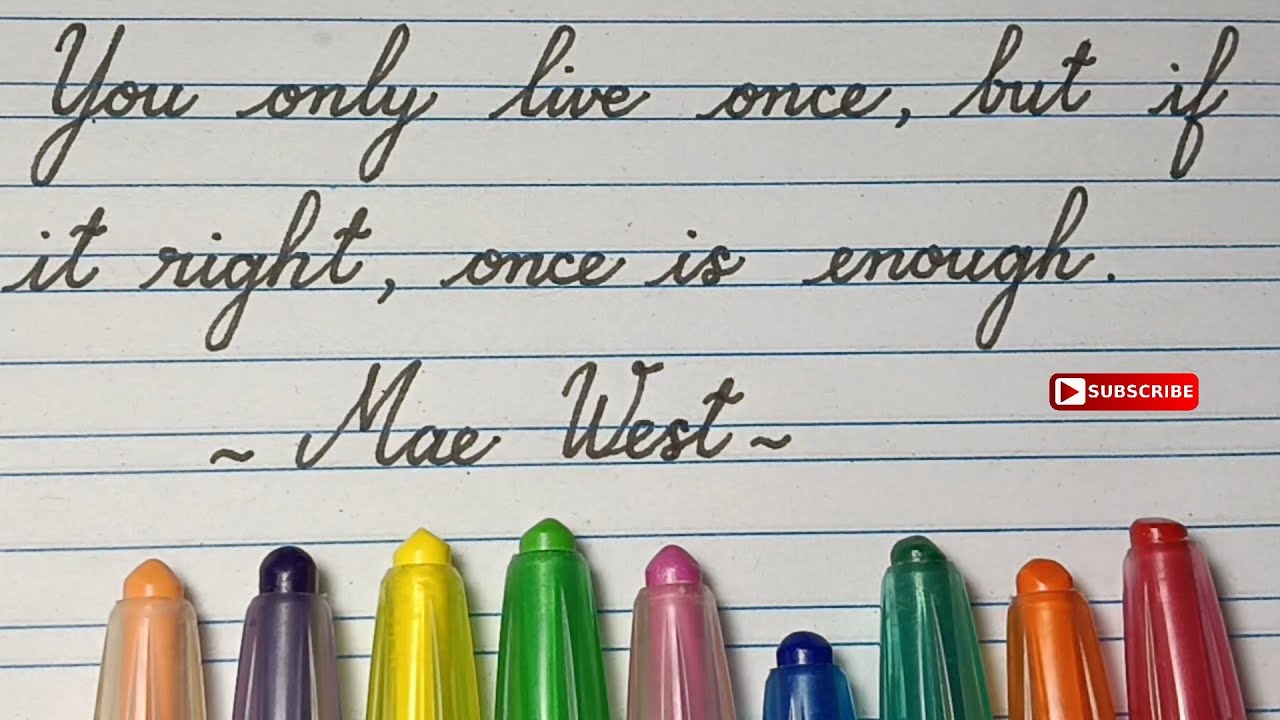 You only live once, but if
it right, once is enough.
~ Mae West ~
SUBSCRIBE